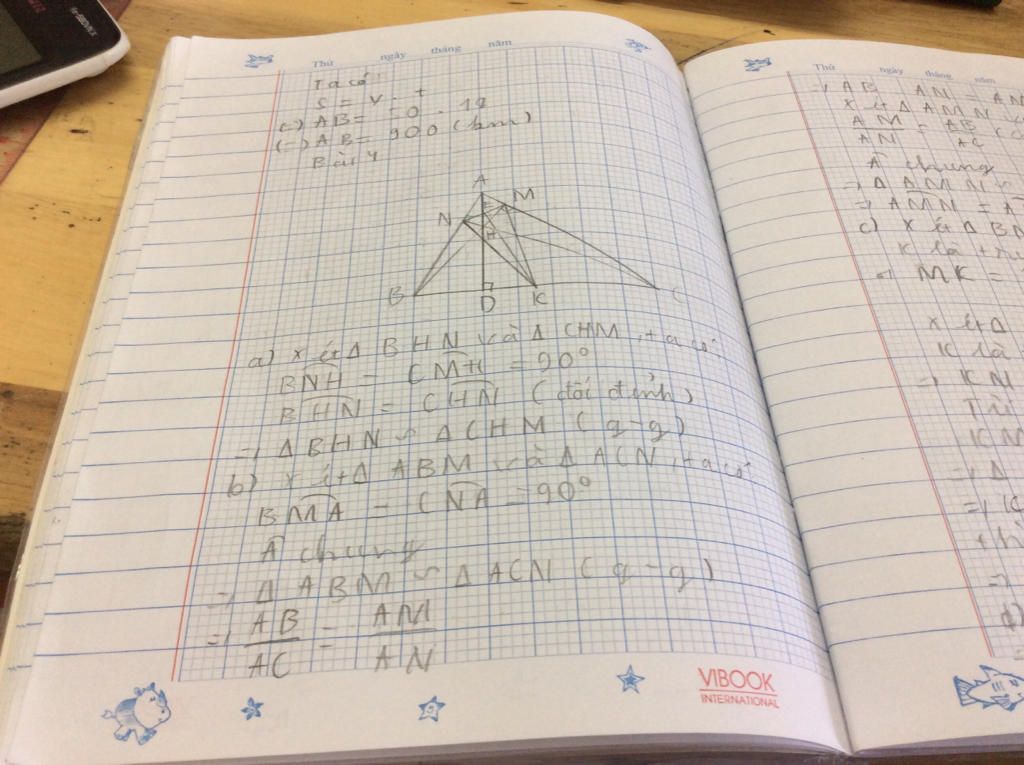 fx-580VNX
Thứ ngày tháng năm
Ta có:
S = v . t
(=) AB = 50 . 18
(=) AB = 900 (km)
Bài 4
A
M
N
H
B
D
K
C
a) Xét Δ BHN và Δ CHM, ta có:
BNH = CMH = 90°
BHN = CHN (đối đỉnh)
=> Δ BHN ∽ Δ CHM (g-g)
b) Xét Δ ABM và Δ ACN, ta có:
BMA = CNA = 90°
Â chung
=> Δ ABM ∽ Δ ACN (g-g)
=> AB/AC = AM/AN
VIBOOK
INTERNATIONAL
Thứ ngày tháng năm
=> AB AN = AM
Xét Δ AMN và
AM/AN = AB/AC
Â chung
=> Δ AMN ∽
=> AMN = A
c) Xét Δ BN
K là
MK =
Xét Δ
K là
=> KN
Từ
KM
=> Δ
=> K
=>
d)